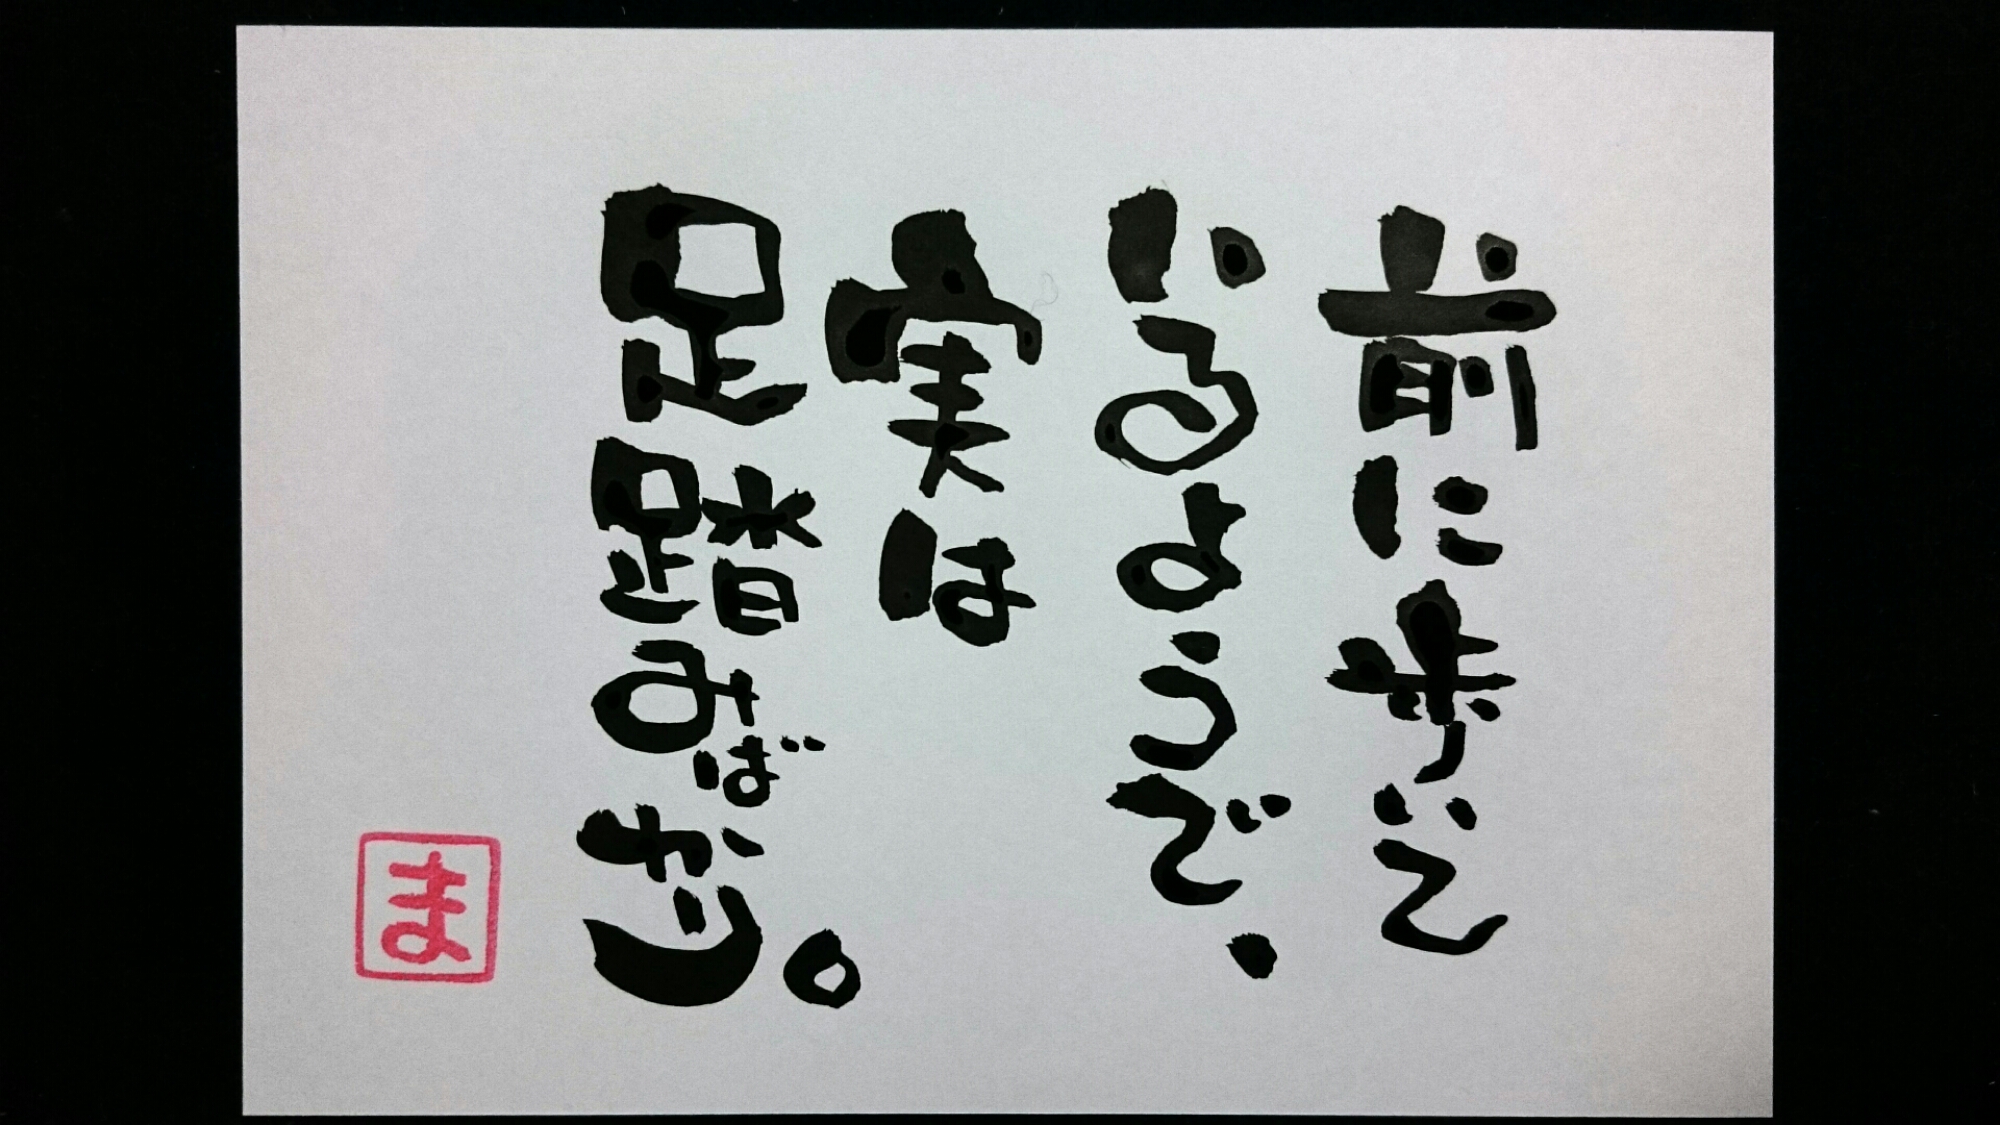 前に歩いて
いるようで、
実は
足踏みばかり。
ま